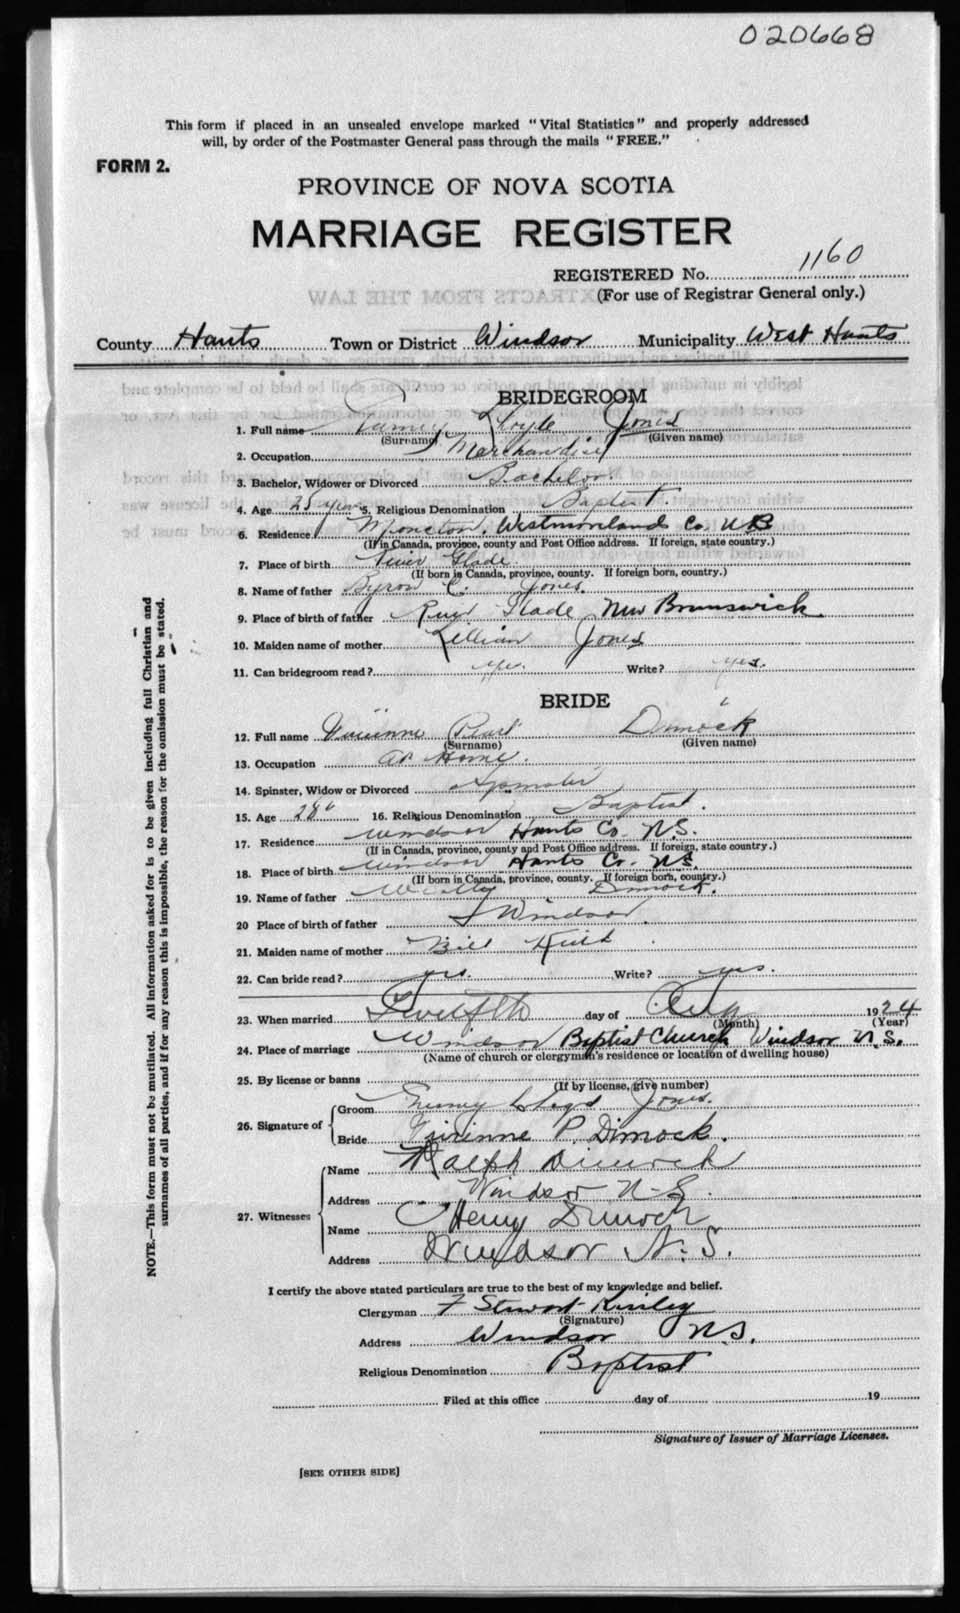 020668
This form if placed in an unsealed envelope marked "Vital Statistics" and properly addressed
will, by order of the Postmaster General pass through the mails "FREE."
FORM 2.
PROVINCE OF NOVA SCOTIA
MARRIAGE REGISTER
REGISTERED No. 1160
(For use of Registrar General only.)
County Hants Town or District Windsor Municipality West Hants
BRIDEGROOM
1. Full name Lloyde Jones
(Surname) (Given name)
2. Occupation
3. Bachelor, Widower or Divorced Bachelor.
4. Age 25 years 5. Religious Denomination Baptist.
6. Residence Moncton, Westmoreland Co. N.B
(If in Canada, province, county and Post Office address. If foreign, state country.)
7. Place of birth River Glade
(If born in Canada, province, county. If foreign born, country.)
8. Name of father Byron C. Jones.
9. Place of birth of father River Glade New Brunswick
10. Maiden name of mother Lillian Jones
11. Can bridegroom read? yes. Write? yes.
BRIDE
12. Full name Pearl Dimock
(Surname) (Given name)
13. Occupation at Home.
14. Spinster, Widow or Divorced Spinster
15. Age 28 16. Religious Denomination Baptist.
17. Residence Windsor Hants Co. N.S.
(If in Canada, province, county and Post Office address. If foreign, state country.)
18. Place of birth Windsor Hants Co. N.S.
(If born in Canada, province, county. If foreign born, country.)
19. Name of father Dimock.
20 Place of birth of father Windsor.
21. Maiden name of mother
22. Can bride read? yes. Write? yes.
23. When married Twelfth day of Aug 1924
(Month) (Year)
24. Place of marriage Windsor Baptist Church Windsor N.S.
(Name of church or clergyman's residence or location of dwelling house)
25. By license or banns
(If by license, give number)
26. Signature of Groom Jones.
Bride P. Dimock.
27. Witnesses Name Ralph Dimock
Address Windsor N.S.
Name Henry Dimock
Address Windsor N.S.
I certify the above stated particulars are true to the best of my knowledge and belief.
Clergyman F Stewart Kinley
(Signature)
Address Windsor N.S.
Religious Denomination Baptist
Filed at this office day of 19
Signature of Issuer of Marriage Licenses.
[SEE OTHER SIDE]
NOTE.—This form must not be mutilated. All information asked for is to be given including full Christian and
surnames of all parties, and if for any reason this is impossible, the reason for the omission must be stated.